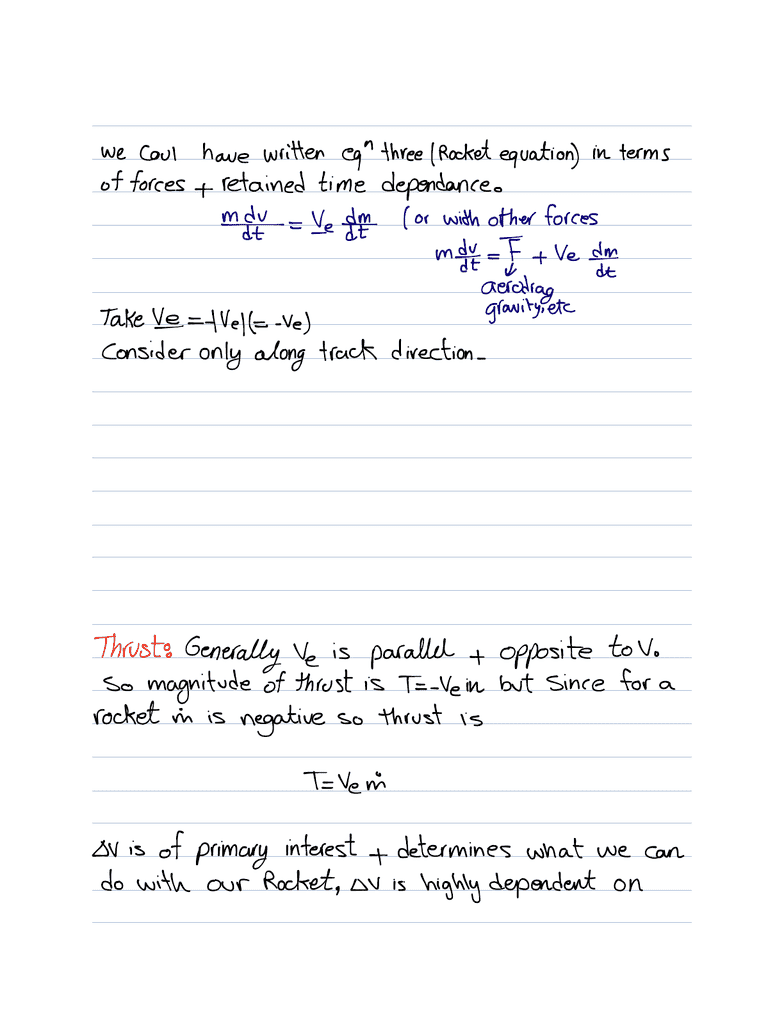 we Coul have written eqⁿ three (Rocket equation) in terms
of forces + retained time dependance.
m dv/dt = Ve dm/dt (or with other forces
m dv/dt = F + Ve dm/dt
↓
aerodrag
gravity, etc
Take Ve = -|Ve| (= -Ve)
Consider only along track direction-
Thrust: Generally Ve is parallel + opposite to V.
So magnitude of thrust is T=-Veṁ but Since for a
rocket ṁ is negative so thrust is
T=Veṁ
ΔV is of primary interest + determines what we can
do with our Rocket, ΔV is highly dependent on